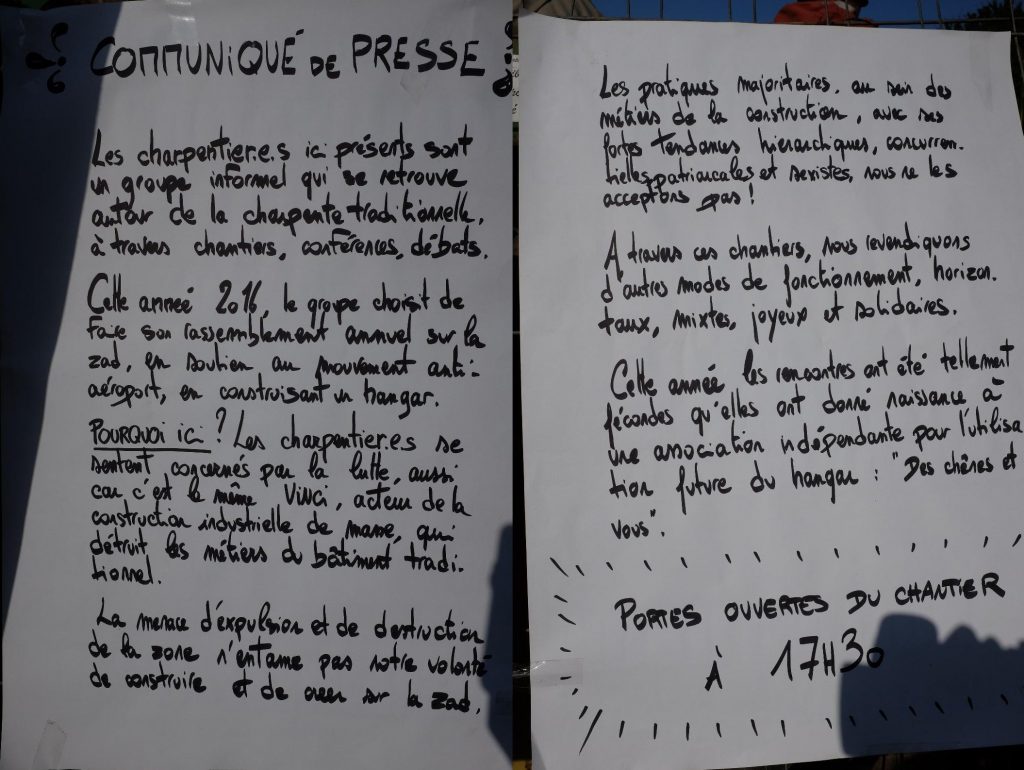 COMMUNIQUÉ DE PRESSE
Les charpentier.e.s ici présents sont
un groupe informel qui se retrouve
autour de la charpente traditionnelle,
à travers chantiers, conférences, débats.
Cette anneé 2016, le groupe choisit de
faire son rassemblement annuel sur la
zad, en soutien au mouvement anti-
aéroport, en construisant un hangar.
POURQUOI ici ? Les charpentier.e.s se
sentent concernés par la lutte, aussi
car c'est le même VINCI, acteur de la
construction industrielle de masse, qui
détruit les métiers du bâtiment tradi-
tionnel.
La menace d'expulsion et de destruction
de la zone n'entame pas notre volonté
de construire et de creer sur la zad.
Les pratiques majoritaires, au sein des
métiers de la construction, avec ses
fortes tendances hierarchiques, concurren-
tielles, patriarcales et sexistes, nous ne les
acceptons pas !
A travers ces chantiers, nous revendiquons
d'autres modes de fonctionnement, horizon-
taux, mixtes, joyeux et solidaires.
Cette anneé les rencontres ont été tellement
fécondes qu'elles ont donné naissance à
une association indépendante pour l'utilisa
tion future du hangar : "Des chênes et
vous".
PORTES OUVERTES DU CHANTIER
À 17H30